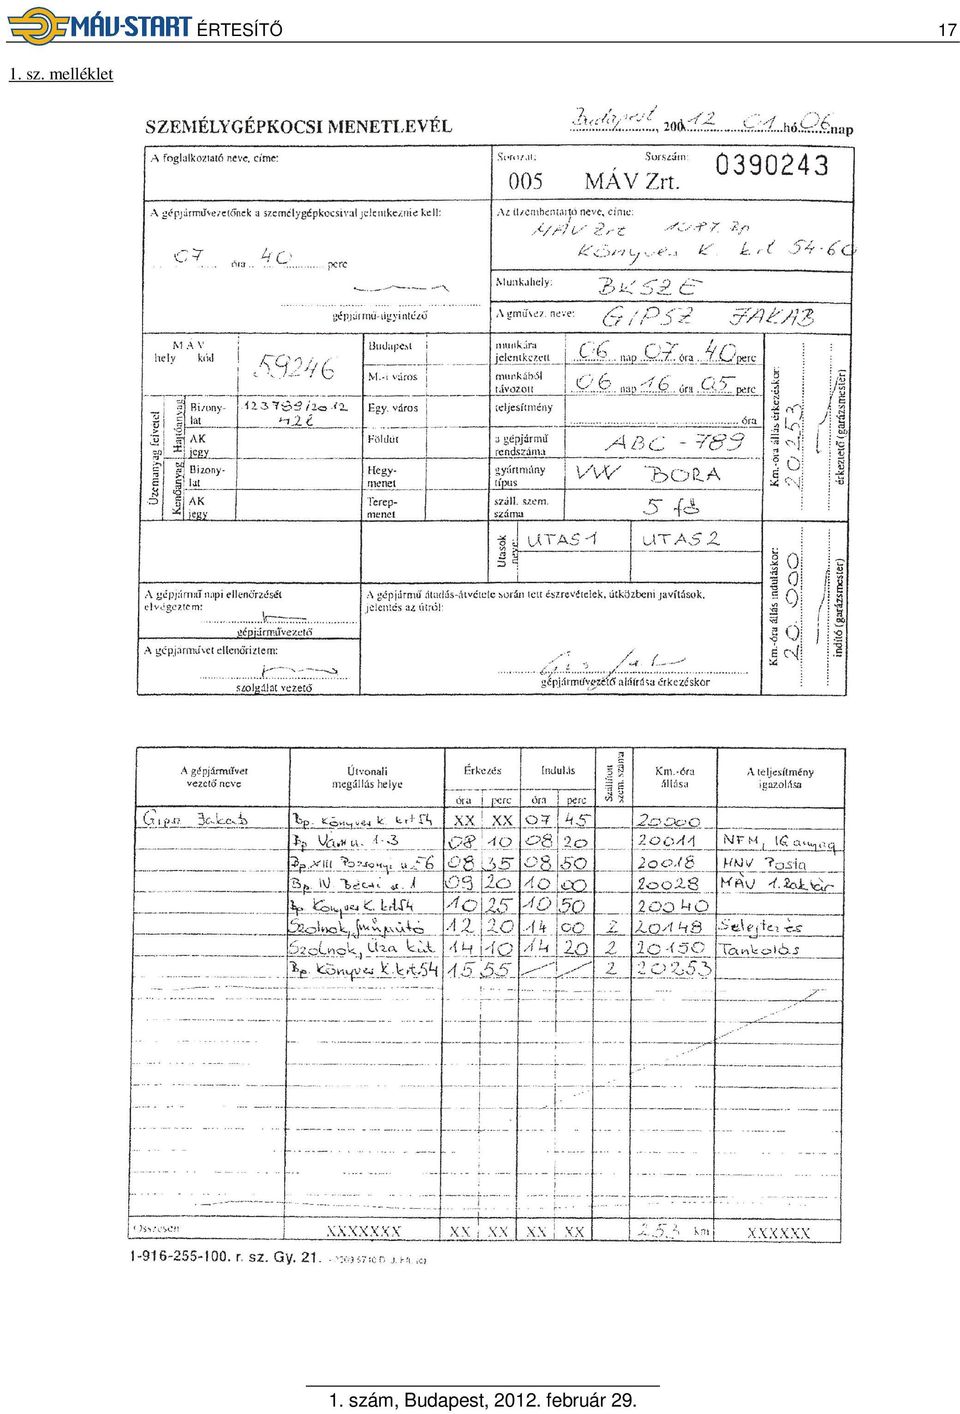 MÁV-START ÉRTESÍTŐ 17
1. sz. melléklet
SZEMÉLYGÉPKOCSI MENETLEVÉL Budapest, 200 12 01 hó 06 nap
A foglalkoztató neve, címe: Sorozat: Sorszám: 0390243
005 MÁV Zrt.
A gépjárművezetőnek a személygépkocsival jelentkeznie kell: Az üzembentartó neve, címe:
MÁV Zrt 1087. Bp
07 óra 40 perc Könyves K. krt 54-60
Munkahely: BKSZE
gépjármű-ügyintéző A gművez. neve: GIPSZ JAKAB
MÁV hely kód 59246 Budapest munkára jelentkezett 06 nap 07 óra 40 perc
M.-i város munkából távozott 06 nap 16 óra 05 perc
Üzemanyag felvétel Hajtóanyag Bizonylat 123799/2012 42 l Egy. város teljesítmény óra
AK jegy Földút a gépjármű rendszáma ABC - 789
Kenőanyag Bizonylat Hegymenet gyártmány típus VW BORA
AK jegy Terepmenet száll. szem. száma 5 fő
Utasok neve: UTAS 1 UTAS 2
Km.-óra állás érkezéskor: 20253 érkeztető (garázsmester)
Km.-óra állás induláskor: 20.000 indító (garázsmester)
A gépjármű napi ellenőrzését elvégeztem: A gépjármű átadás-átvétele során tett észrevételek, útközbeni javítások, jelentés az útról:
gépjárművezető
A gépjárművet ellenőriztem:
szolgálat vezető gépjárművezető aláírása érkezéskor
A gépjárművet vezető neve Útvonali megállás helye Érkezés Indulás Szállított szem. száma Km.-óra állása A teljesítmény igazolása
óra perc óra perc
Gipsz Jakab Bp. Könyves K. krt 54 XX XX 07 45 20000
Bp Vám u. 1-3 08 10 08 20 20011 NFM, IG anyag
Bp. XIII Pozsonyi u. 56 08 35 08 50 20018 MNV Posta
Bp. IV Bécsi u. 1 09 20 10 00 20028 MÁV 1. Raktár
Bp. Könyves K. krt54 10 25 10 50 20040
Szolnok, Járműjavító 12 20 14 00 2 20148 Selejtezés
Szolnok, Úza kút 14 10 14 20 2 20150 Tankolás
Bp. Könyves K. krt54 15 55 2 20253
Összesen XXXXXXX XX XX XX XX 253 km XXXXXX
1-916-255-100. r. sz. Gy. 21.
1. szám, Budapest, 2012. február 29.